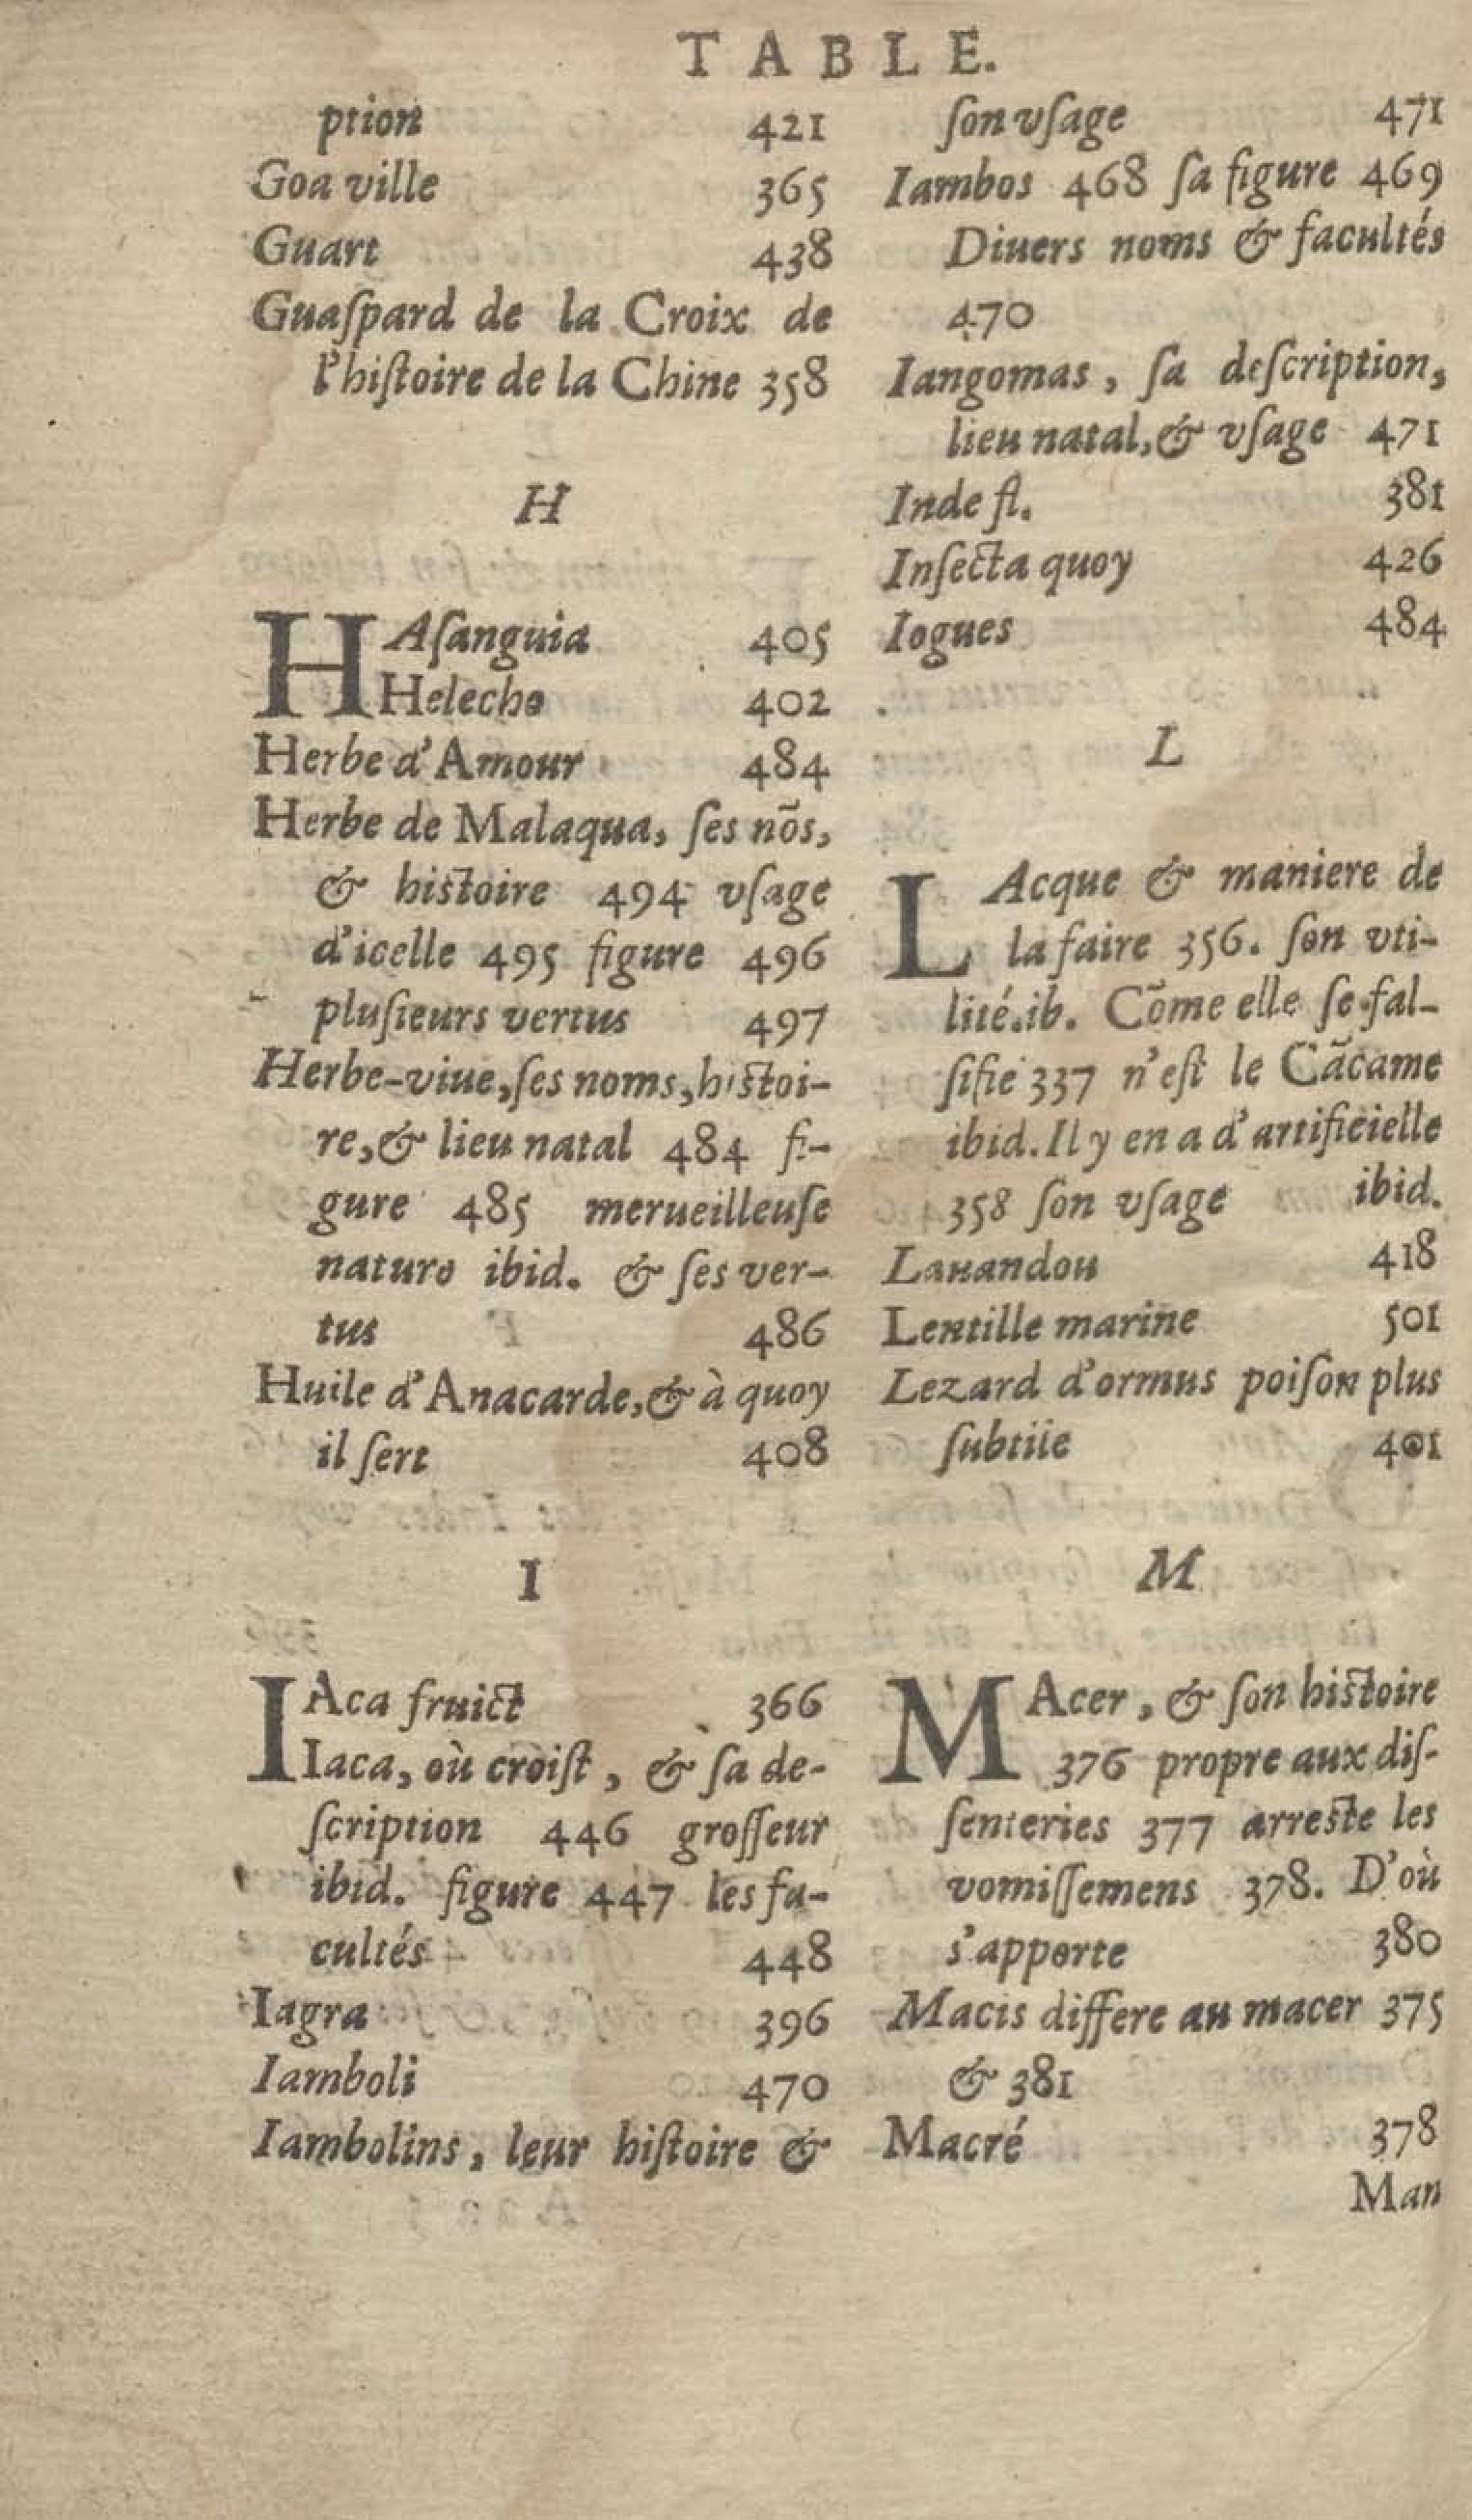 TABLE.
ption 421
Goa ville 365
Guart 438
Guaſpard de la Croix de
l'hiſtoire de la Chine 358
H
HAſanguia 405
Helecho 402
Herbe d'Amour 484
Herbe de Malaqua, ſes nõs,
& hiſtoire 494 vſage
d'icelle 495 figure 496
pluſieurs vertus 497
Herbe-viue, ſes noms, hiſtoi-
re, & lieu natal 484 fi-
gure 485 merueilleuſe
nature ibid. & ſes ver-
tus 486
Huile d'Anacarde, & à quoy
il ſert 408
I
IAca fruict 366
Iaca, où croiſt, & ſa de-
ſcription 446 groſſeur
ibid. figure 447 les fa-
cultés 448
Iagra 396
Iamboli 470
Iambolins, leur hiſtoire &
ſon vſage 471
Iambos 468 ſa figure 469
Diuers noms & facultés
470
Iangomas, ſa deſcription,
lieu natal, & vſage 471
Inde fl. 381
Inſecta quoy 426
Iogues 484
L
LAcque & maniere de
la faire 356. ſon vti-
lité. ib. Cõme elle ſe fal-
ſifie 337 n'eſt le Cãcame
ibid. Il y en a d'artificielle
358 ſon vſage ibid.
Lauandou 418
Lentille marine 501
Lezard d'ormus poiſon plus
ſubtile 401
M
MAcer, & ſon hiſtoire
376 propre aux diſ-
ſenteries 377 arreſte les
vomiſſemens 378. D'où
s'apporte 380
Macis differe au macer 375
& 381
Macré 378
Man